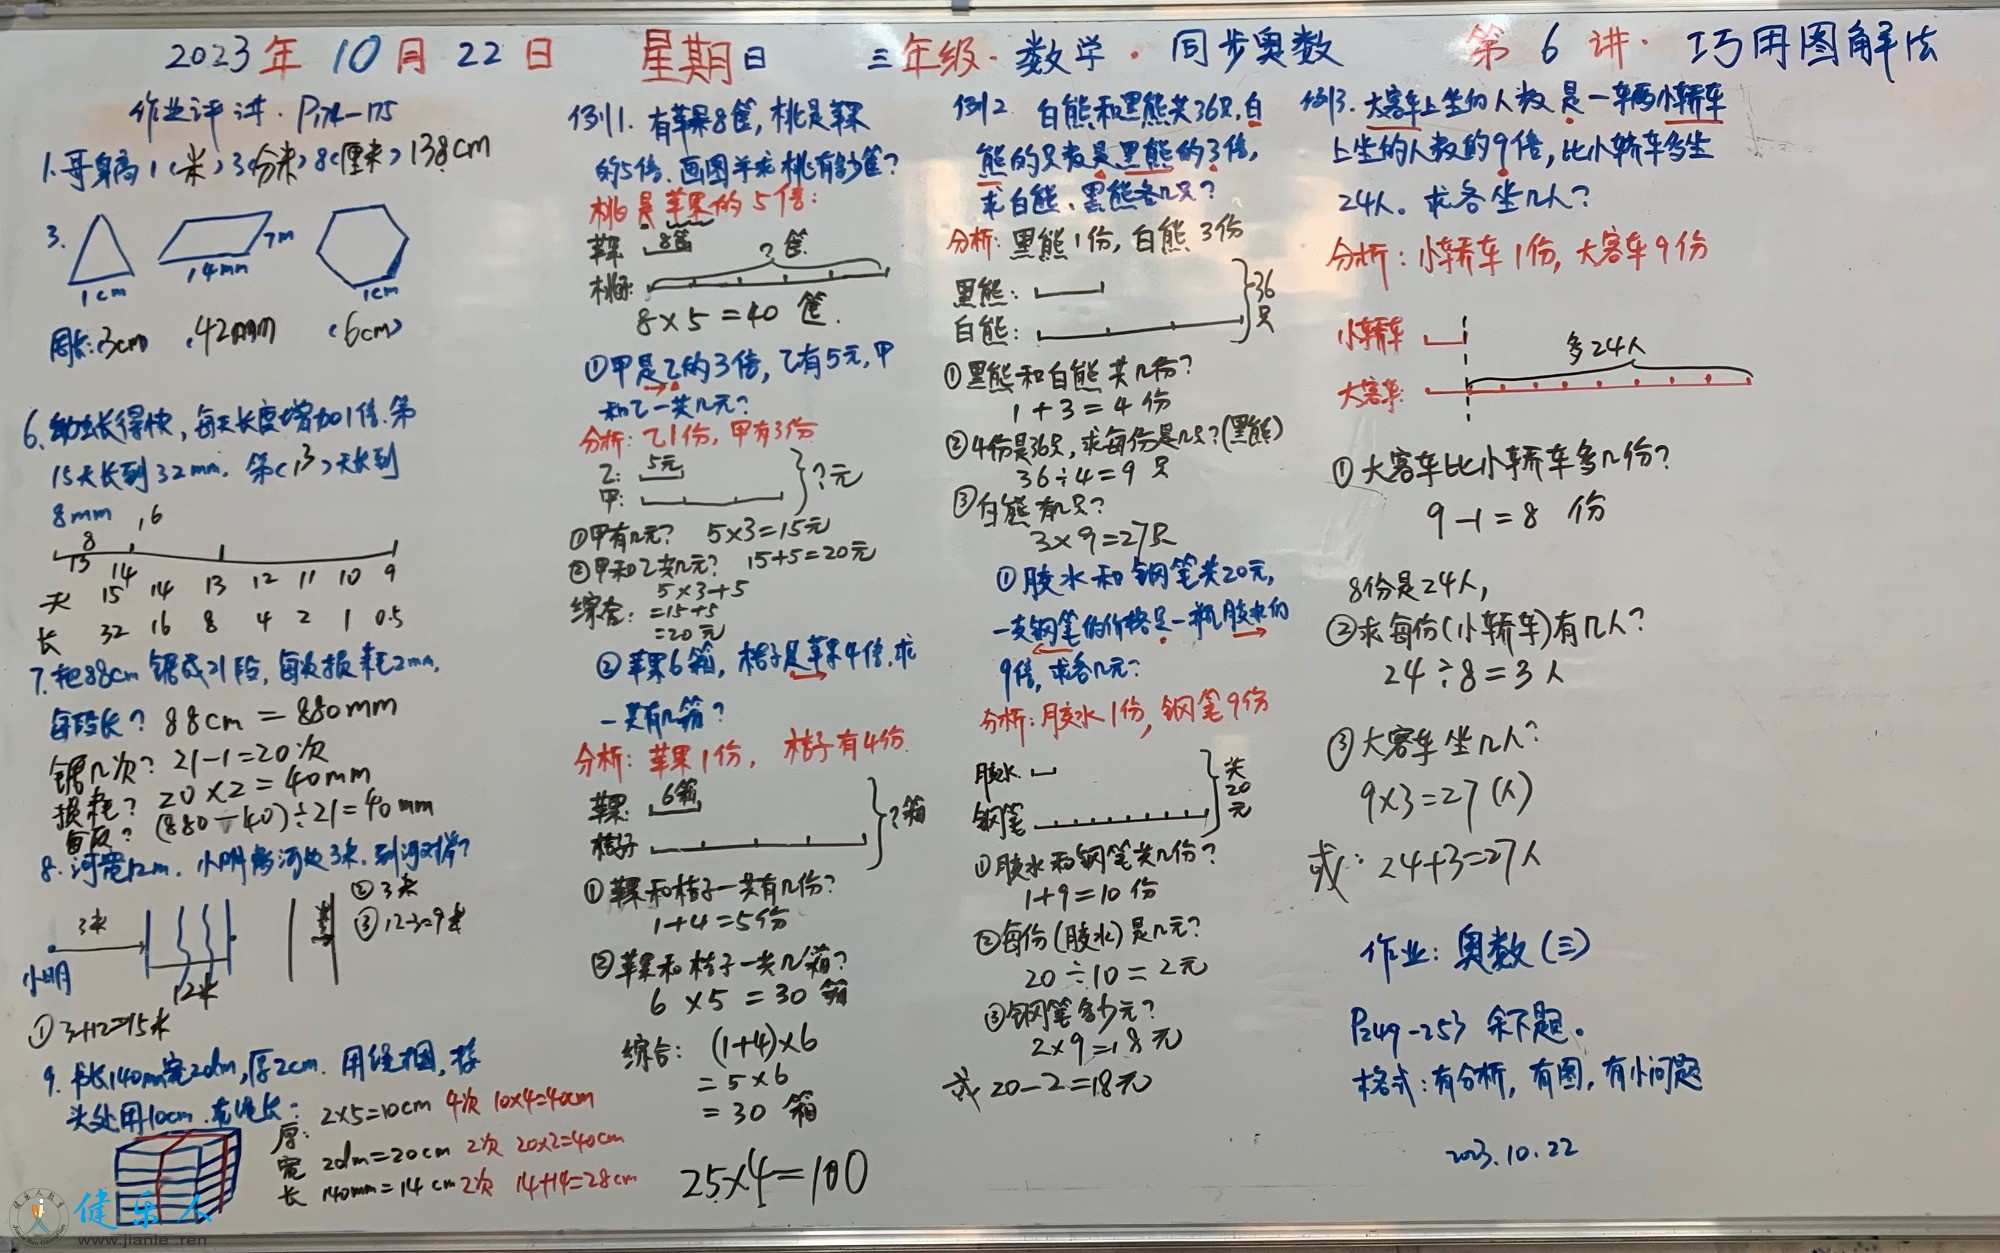 2023年10月22日 星期日 三年级·数学·同步奥数 第6讲·巧用图解法
作业评讲·P174-175
1.哥身高1(米)3(分米)8(厘米)138cm
3.
1cm
14mm
7m
1cm
周长:3cm 42mm (6cm)
长得快,每天长度增加1倍.第
15天长到32mm.第(13)天长到
8mm ,16
8
13 14
天 15 14 13 12 11 10 9
长 32 16 8 4 2 1 0.5
7.把88cm锯成21段,每次损耗2mm,
每段长? 88cm=880mm
锯几次? 21-1=20次
损耗? 20×2=40mm
每段? (880-40)÷21=40mm
8.河宽12m.小明离河处3米.到河对岸?
3米
小明
12米
②3米
③12-3=9米
①3+12=15米
9.书长140mm宽2dm,厚2cm.用绳捆,接
头处用10cm.
厚: 2×5=10cm 4次 10×4=40cm
宽 2dm=20cm 2次 20×2=40cm
长 140mm=14cm 2次 14+14=28cm
健乐人
www.jianle.ren
例1.有苹果8筐,桃是苹果
的5倍.画图并求桃有多少筐?
桃是苹果的5倍:
苹果: 8筐
?筐
桃子:
8×5=40 筐.
①甲是乙的3倍,乙有5元,甲
和乙一共几元?
分析:乙1份,甲有3份
乙: 5元
甲:
?元
①甲有几元? 5×3=15元
②甲和乙共几元? 15+5=20元
5×3+5
综合: =15+5
=20元
②苹果6箱,桔子是苹果4倍.求
一共有几箱?
分析:苹果1份, 桔子有4份.
苹果: 6箱
桔子
?箱
①苹果和桔子一共有几份?
1+4=5份
②苹果和桔子一共几箱?
6×5=30 箱
综合: (1+4)×6
=5×6
=30 箱
25×4=100
例2. 白熊和黑熊共36只,白
熊的只数是黑熊的3倍,
求白熊、黑熊各几只?
分析:黑熊1份,白熊3份
黑熊:
白熊:
36只
①黑熊和白熊共几份?
1+3=4份
②4份是36只,求每份是几只?(黑熊)
36÷4=9 只
③白熊有几只?
3×9=27只
①胶水和钢笔共20元,
一支钢笔的价格是一瓶胶水的
9倍,求各几元?
分析:胶水1份,钢笔9份
胶水
钢笔
共20元
①胶水和钢笔共几份?
1+9=10份
②每份(胶水)是几元?
20÷10=2元
③钢笔多少元?
2×9=18元
或 20-2=18元
例3.大客车上坐的人数是一辆小轿车
上坐的人数的9倍,比小轿车多坐
24人。求各坐几人?
分析:小轿车1份,大客车9份
小轿车
多24人
大客车:
①大客车比小轿车多几份?
9-1=8 份
8份是24人,
②求每份(小轿车)有几人?
24÷8=3人
③大客车坐几人?
9×3=27(人)
或:24+3=27人
作业:奥数(三)
P249-253 余下题。
格式:有分析,有图,有小问题
2023.10.22